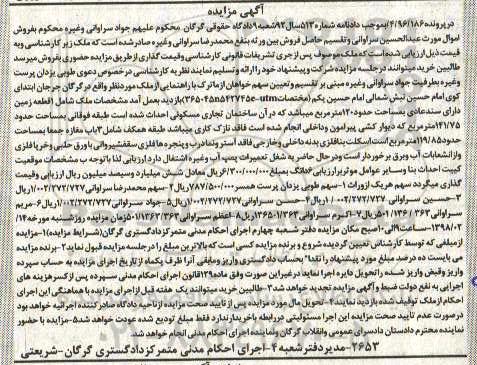 آگهی مزایده
در پرونده ۴/۹۶/۱۸۶ بموجب دادنامه شماره ۵۱۳ سال ۹۲ شعبه ۹ دادگاه حقوقی گرگان محکوم علیهم جواد سراوانی وغیره محکوم بفروش
اموال مورث عبدالحسین سراوانی وتقسیم حاصل فروش بین ورثه بنفع محمدرضا سراوانی وغیره صادر شده است که ملک زیر کارشناسی وبه
قیمت ذیل ارزیابی شده است که ملک موصوف پس از جری تشریفات قانونی کارشناسی وقیمت گذاری از طریق مزایده حضوری بفروش میرسد
طالبین خرید میتوانند در جلسه مزایده شرکت وپیشنهاد خود را ارائه وتسلیم نمایند نظریه کارشناسی در خصوص دعوی طوبی یزدان پرست
وغیره بطرفیت جواد سراوانی وغیره مبنی بر تقسیم وتعیین سهم خواهان از ماترک با راهنمایی از ملک مورد نظر واقع در گرگان جرجان ابتدای
کوی امام حسین نبش شمالی امام حسین یکم (مختصات utm-e ۳۶۵۰۴۵n۵۴۲۷۴۵) بازدید بعمل آمد مشخصات ملک شامل ۱ قطعه زمین
دارای سند عادی بمساحت حدود ۱۲۰ مترمربع میباشد که در آن ساختمان تجاری مسکونی احداث شده است طبقه فوقانی بمساحت حدود
۱۴۱/۷۵ مترمربع که دیوار کشی پیرامون داخلی انجام شده است فاقد نازک کاری میباشد طبقه همکف شامل ۳ باب مغازه جمعا بمساحت
حدود ۱۱۹/۸۵ مترمربع است اسکلت بنا فلزی بدنه داخلی وخارجی فاقد آستر ونما درب وپنجره ها فلزی سقف شیروانی با ورق حلبی وخرپا فلزی
وازانشعابات آب وبرق برخوردار است ودر حال حاضر به شغل تعمیرات پمپ آب وغیره اشتغال دارد ارزیابی لذا با توجه ب مشخصات موقعیت
کمیت احداث بنا وسایر عوامل موثر برارزیابی ۶دانگ بمبلغ ۶/۳۰۰/۰۰۰/۰۰۰ ریال معادل شش میلیارد وسیصد میلیون ریال ارزیابی وقیمت
گذاری میگردد سهم هریک از وراث ۱-سهم طوبی یزدان پرست همسر ۷۸۷/۵۰۰/۰۰۰ ریال ۲-سهم محمدرضا سراوانی ۱/۰۰۲/۲۷۲/۷۲۷ ریال
۳-حسین سراوانی ۱/۰۰۲/۲۷۲/۷۲۷ ریال ۴-حسن سراوانی ۱/۰۰۲/۲۷۲/۷۲۷ ریال ۵-جواد سراوانی ۱/۰۰۲/۲۷۲/۷۲۷ ریال ۶-مریم
سراوانی ۵۰۱/۱۳۶/۳۶۳ ریال ۷-اکرم سراوانی ۵۰۱/۱۳۶۳۶۳ ریال ۸-اعظم سراوانی ۵۰۱/۱۳۶۳۶۳ زمان مزایده روز شنبه مورخه ۱۴/
۱۳۹۸/۰۲ ساعت ۹ الی ۱۰ صبح مکان مزایده دفتر شعبه چهارم اجرای احکام مدنی متمرکز دادگستری گرگان (شرایط مزایده) ۱-مزایده
ازمبلغی که توسط کارشناس تعیین گردیده شروع و برنده مزایده کسی است که بالاترین مبلغ را در جلسه مزایده قبول نماید ۲-برنده مزایده
می بایست ده درصد مبلغ مورد پیشنهاد را نقدا" بحساب دادگستری واریز ومابقی آنرا ظرف یکماه از تاریخ اجرای مزایده به حساب سپرده
واریز وقبض واریز شده راتحویل دایره اجرا نماید درغیر این صورت وفق ماده ۱۲۹ قانون اجرای احکام مدنی سپرده پس از کسر هزینه های
اجرایی به نفع دولت ضبط و آگهی مزایده تجدید خواهد شد ۳-طالبین خرید میتوانند یک هفته قبل از اجرای مزایده با هماهنگی این اجرای
احکام از ملک توقیف شده بازدید نمایند ۴-تحویل مال مورد مزایده پس از تایید صحت مزایده از ناحیه دادگاه صادر کننده اجرائیه خواهد بود
درصورت عدم تایید صحت مزایده این اجرا مسئولیتی در رابطه باخریدار ندارد فقط مبلغ تودیع شده عودت خواهد شد ۵-مزایده با حضور
نماینده محترم دادستان دادسرای عمومی وانقلاب گرگان ونماینده اجرای احکام مدنی انجام خواهد شد
۲۶۵۳-مدیر دفتر شعبه ۴-اجرای احکام مدنی متمرکز دادگستری گرگان-شریعتی